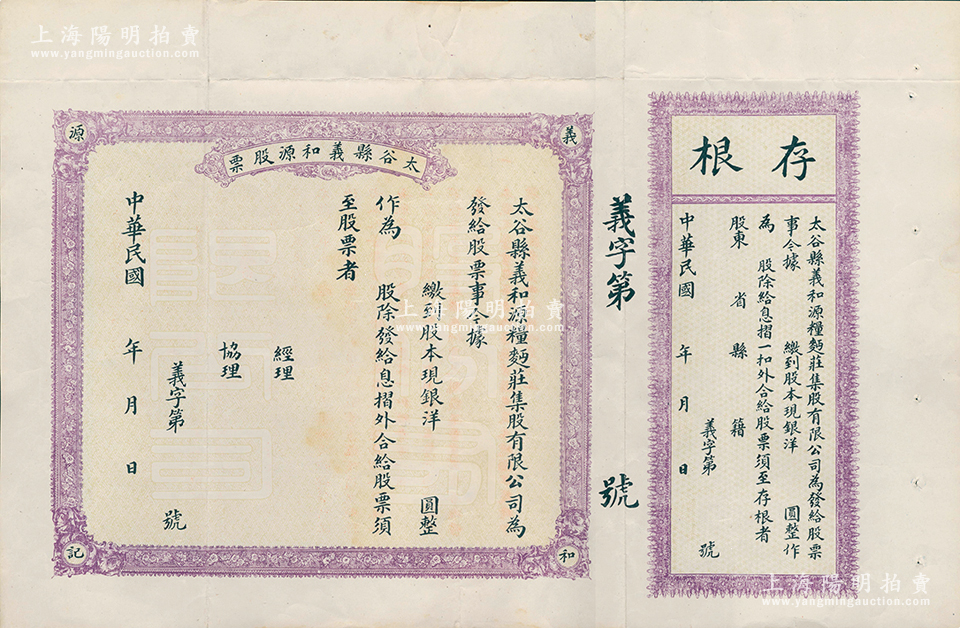 上海陽明拍賣
www.yangmingauction.com
存根
太谷縣義和源糧麵莊集股有限公司為發給股票
事今據 繳到股本現銀洋 圓整作
為 股除給息摺一扣外合給股票須至存根者
股東 省 縣 籍
義字第 號
中華民國 年 月 日
義字第 號
太谷縣義和源股票
義
和
源
記
太谷縣義和源糧麵莊集股有限公司為
發給股票事今據
繳到股本現銀洋 圓整
作為 股除發給息摺外合給股票須
至股票者
經理
協理
義字第 號
中華民國 年 月 日
上海陽明拍賣
www.yangmingauction.com
上海陽明拍賣
www.yangmingauction.com